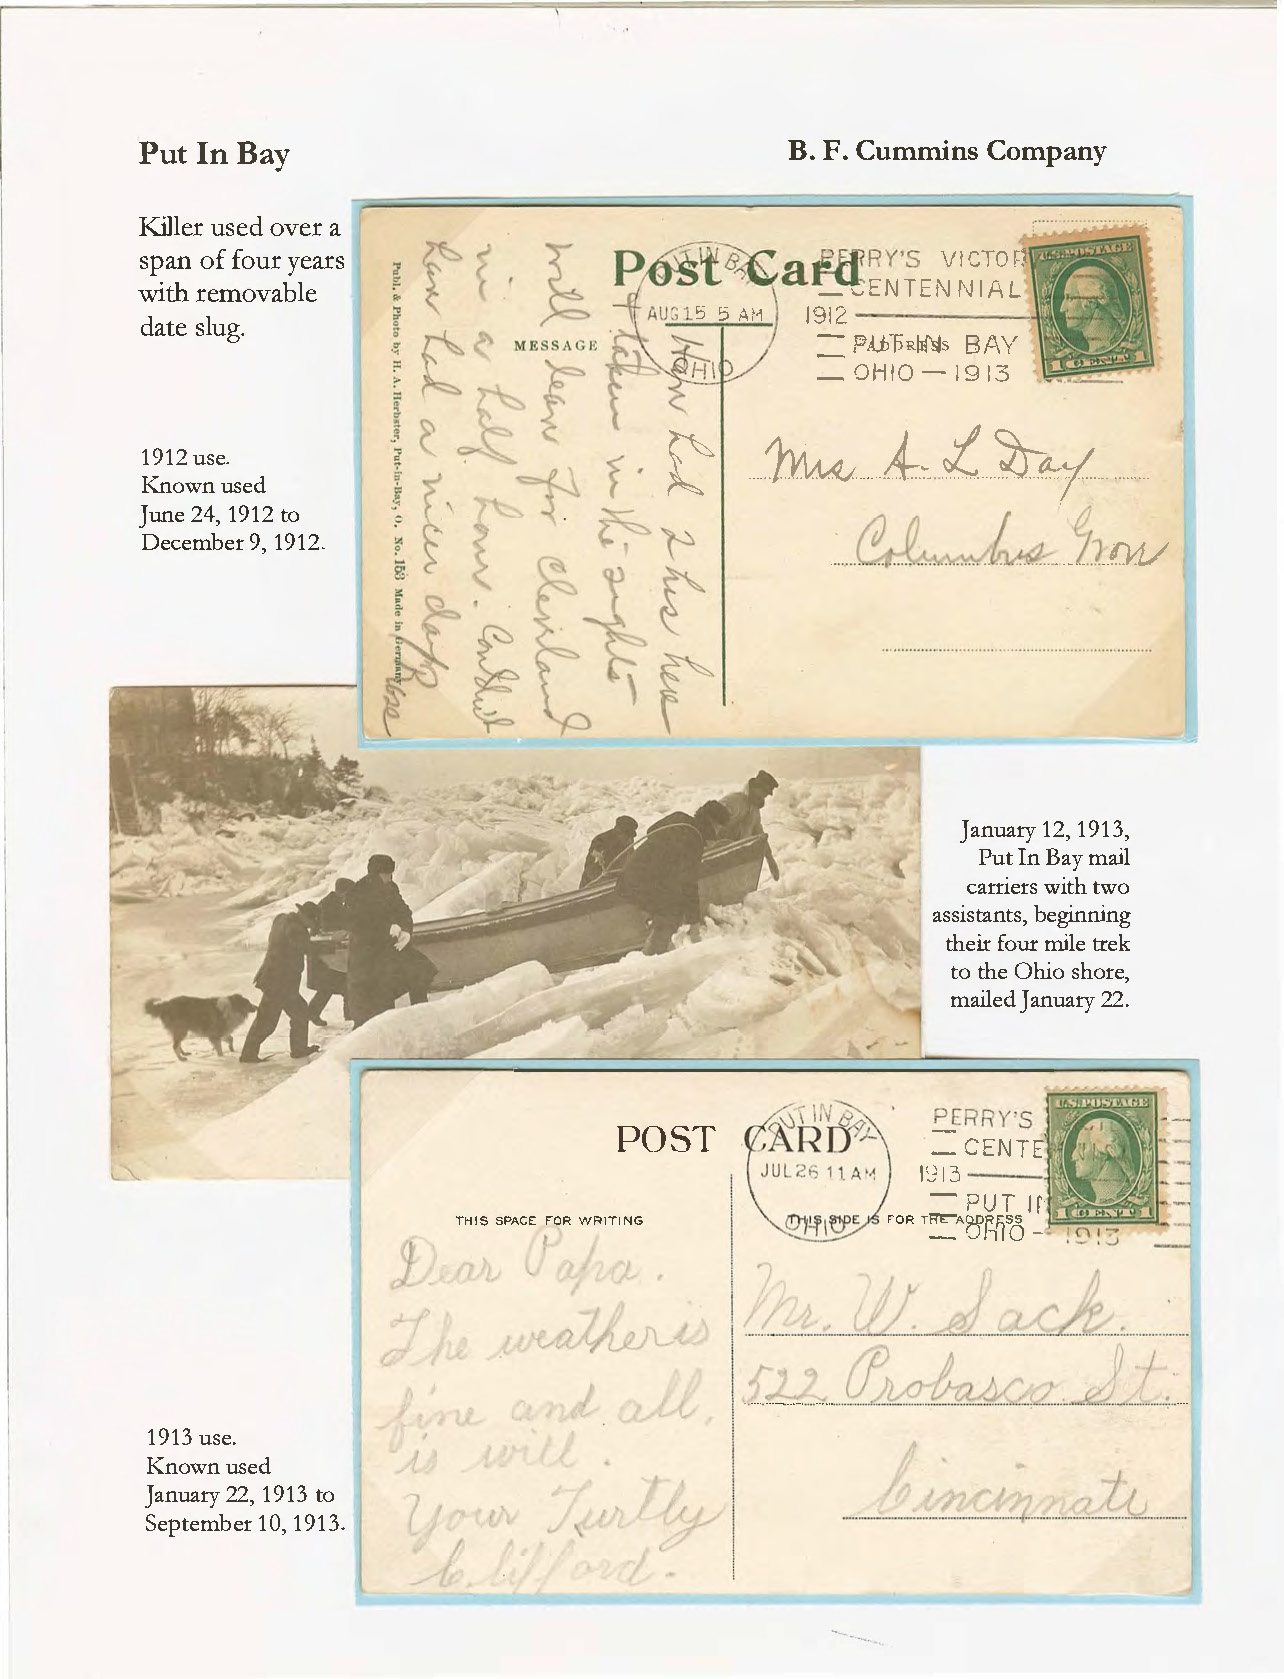 Put In Bay
B. F. Cummins Company
Killer used over a
span of four years
with removable
date slug.
1912 use.
Known used
June 24, 1912 to
December 9, 1912.
Post Card
MESSAGE
PUT IN BAY
AUG 15 5 AM
OHIO
PERRY'S VICTOR
CENTENNIAL
1912
PUT IN BAY
OHIO — 1913
U.S. POSTAGE
1 CENT 1
Mrs A. L Day
Columbus Grov
Have had 2 hrs here
& taken in the sights
will leave for Cleveland
in a half hour.
have had a nicer day
Rose
Publ. & Photo by H. A. Herbster, Put-in-Bay, O. No. 153 Made in Germany
January 12, 1913,
Put In Bay mail
carriers with two
assistants, beginning
their four mile trek
to the Ohio shore,
mailed January 22.
POST CARD
PUT IN BAY
JUL 26 11 AM
OHIO
PERRY'S
CENTE
1913
PUT IN
OHIO — 1913
U.S. POSTAGE
1 CENT 1
THIS SPACE FOR WRITING
THIS SIDE IS FOR THE ADDRESS
Dear Papa.
The weather is
fine and all,
is will.
Your Turtly
Clifford.
Mr. W. Sack.
522 Probasco St.
Cincinnati
1913 use.
Known used
January 22, 1913 to
September 10, 1913.